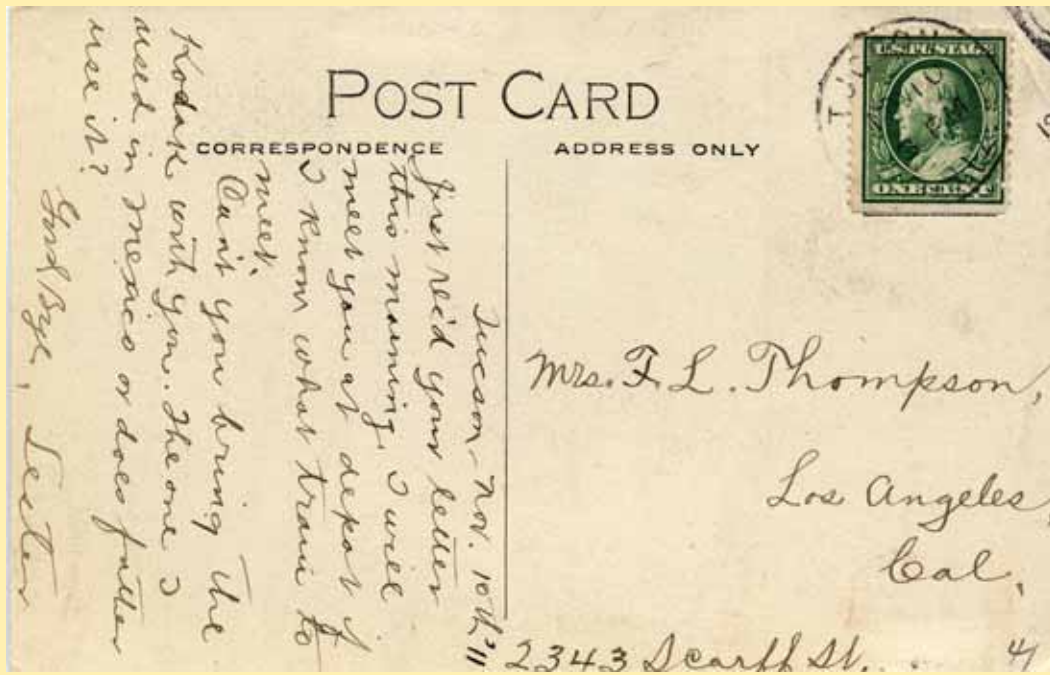 POST CARD
CORRESPONDENCE
ADDRESS ONLY
Tucson - Nov. 10th '11
Just rec'd your letter
this morning, I will
meet you at depot if
I know what train to
meet.
Can't you bring the
Kodak with you. The one I
used in Mexico or does father
use it?
Good Bye, Lester
TUCSON
10
PM
U.S. POSTAGE
ONE CENT
Mrs. F. L. Thompson,
Los Angeles,
Cal.
2343 Scarff St.